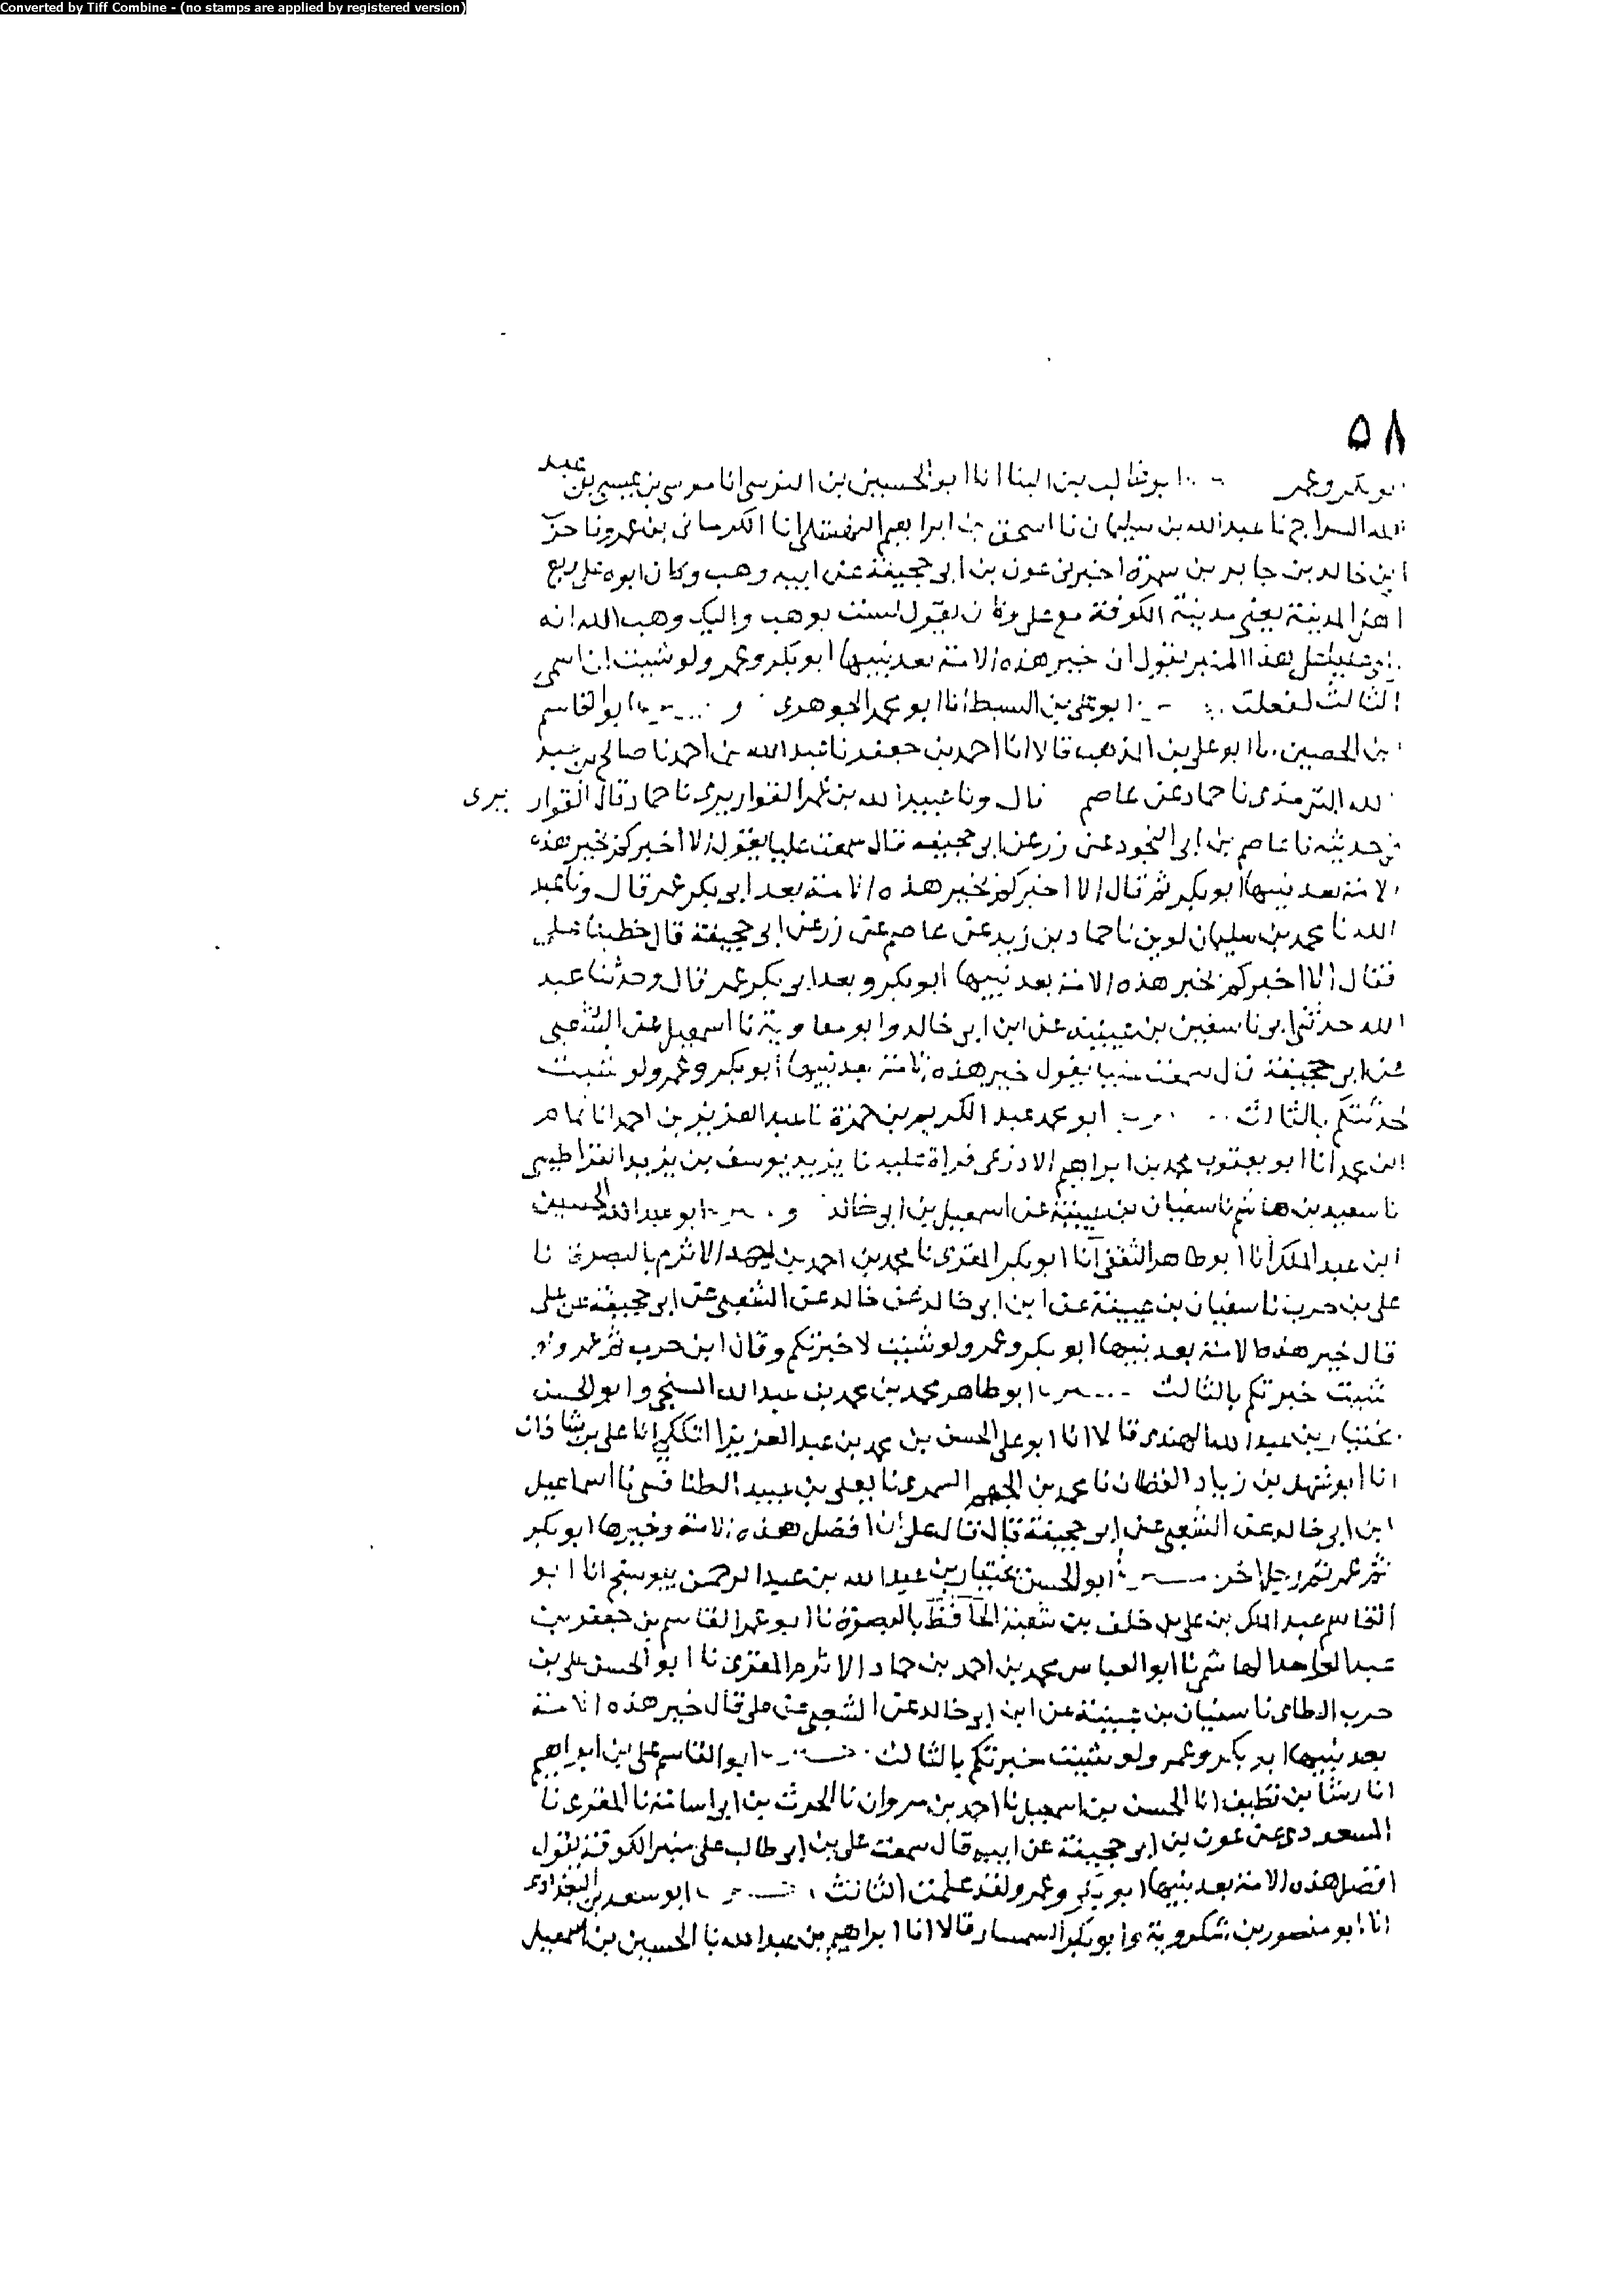 Converted by Tiff Combine - (no stamps are applied by registered version)
٥٨
ابو بكر وعمر ابو غالب بن البنا انا ابو الحسين بن النرسي انا موسى بن عيسى بن عبد
الله السراج نا عبد الله بن سليمان نا اسحق بن ابراهيم النهشلي نا الكرماني بن عمرو نا
ابن خالد بن جابر بن سمرة اخبرني عون بن ابي جحيفة عن ابيه وهب وكان ابوه على ربع
اهل المدينة يعني مدينة الكوفة مع علي وهب واليك وهب الله انه
على هذا المنبر يقول ان خير هذه الامة بعد نبيها ابو بكر وعمر ولو شيت ان اسمي
الثالث لفعلت ابو علي بن السبط انا ابو محمد الجوهري و ابو القاسم
بن الحصين انا ابو علي بن المذهب قالا انا احمد بن جعفر نا عبد الله بن احمد نا صالح بن عبد
لله الترمذي نا حماد عن عاصم قال ونا عبيد الله بن عمر القواريري نا حماد قال القوار يرى
حديثه نا عاصم بن ابي النجود عن زر عن ابي جحيفه قال سمعت عليا يقول الا اخبركم بخير هذه
الامة بعد نبيها ابو بكر ثم قال الا اخبركم بخير هذه الامة بعد ابي بكر عمر قال ونا عبد
الله نا محمد بن سليمان لوين نا حماد بن زيد عن عاصم عن زر عن ابي جحيفة قال خطبنا علي
فقال الا اخبركم بخير هذه الامة بعد نبيها ابو بكر وبعد ابي بكر عمر قال وحدثنا عبد
الله حدثني ابي نا سفين بن عيينه عن ابن ابي خالد وابو معاوية نا اسمعيل عن الشعبي
عن ابي جحيفة قال سمعت عليا يقول خير هذه الامة بعد نبيها ابو بكر وعمر ولو شيت
لحدثتكم بالثالث ابو محمد عبد الكريم بن حمزة نا عبد العزيز بن احمد انا تمام
ابن محمد انا ابو يعقوب محمد بن ابراهيم الاذرعي قراة عليه نا يزيد يوسف بن يزيد القراطيسي
نا سعيد بن هاشم نا سفيان بن عيينة عن اسمعيل بن ابي خالد و ابو عبد الله الحسين
ابن عبد الملك انا ابو طاهر الثقفي انا ابو بكر المقري نا محمد بن احمد بن الاثرم بالبصرة نا
علي بن حرب نا سفيان بن عيينة عن ابن ابي خالد عن خالد عن الشعبي عن ابي جحيفة عن علي
قال خير هذه الامة بعد نبيها ابو بكر وعمر ولو شيت لاخبرتكم وقال ابن حرب ثم عمر ولو
شيت خبرتكم بالثالث ابو طاهر محمد بن محمد بن عبد الله السنجي وابو الحسن
بختيار بن عبد الله الهندي قالا انا ابو علي الحسن بن محمد بن عبد العزيز التككي انا علي بن شاذان
انا ابو سهل بن زياد القطان نا محمد بن الجهم السمري نا يعلى بن عبيد الطنافسي نا اسماعيل
ابن ابي خالد عن الشعبي عن ابي جحيفة قال قال علي ان افضل هذه الامة وخيرها ابو بكر
ثم عمر ثم رجل اخر ابو الحسن بختيار بن عبد الله بن عبد الرحمن ببوشنج انا ابو
القاسم عبد الملك بن علي بن خلف بن شعبة الحافظ بالبصرة نا ابو عمر القاسم بن جعفر بن
عبد الواحد الهاشمي نا ابو العباس محمد بن احمد بن حماد الاثرم المقري نا ابو الحسن علي بن
حرب الطائي نا سفيان بن عيينة عن ابن ابي خالد عن الشعبي عن علي قال خير هذه الامة
بعد نبيها ابو بكر وعمر ولو شيت خبرتكم بالثالث ابو القاسم علي بن ابراهيم
انا رشا بن نظيف انا الحسن بن اسمعيل نا احمد بن مروان نا الحرث بن ابي اسامة نا المقري نا
المسعودي عن عون بن ابي جحيفة عن ابيه قال سمعت علي بن ابي طالب على منبر الكوفة يقول
افضل هذه الامة بعد نبيها ابو بكر وعمر ولقد علمت الثالث ابو سعد بن البغدادي
انا ابو منصور بن شكروية وابو بكر السمسار قالا انا ابراهيم بن عبد الله نا الحسين بن اسمعيل